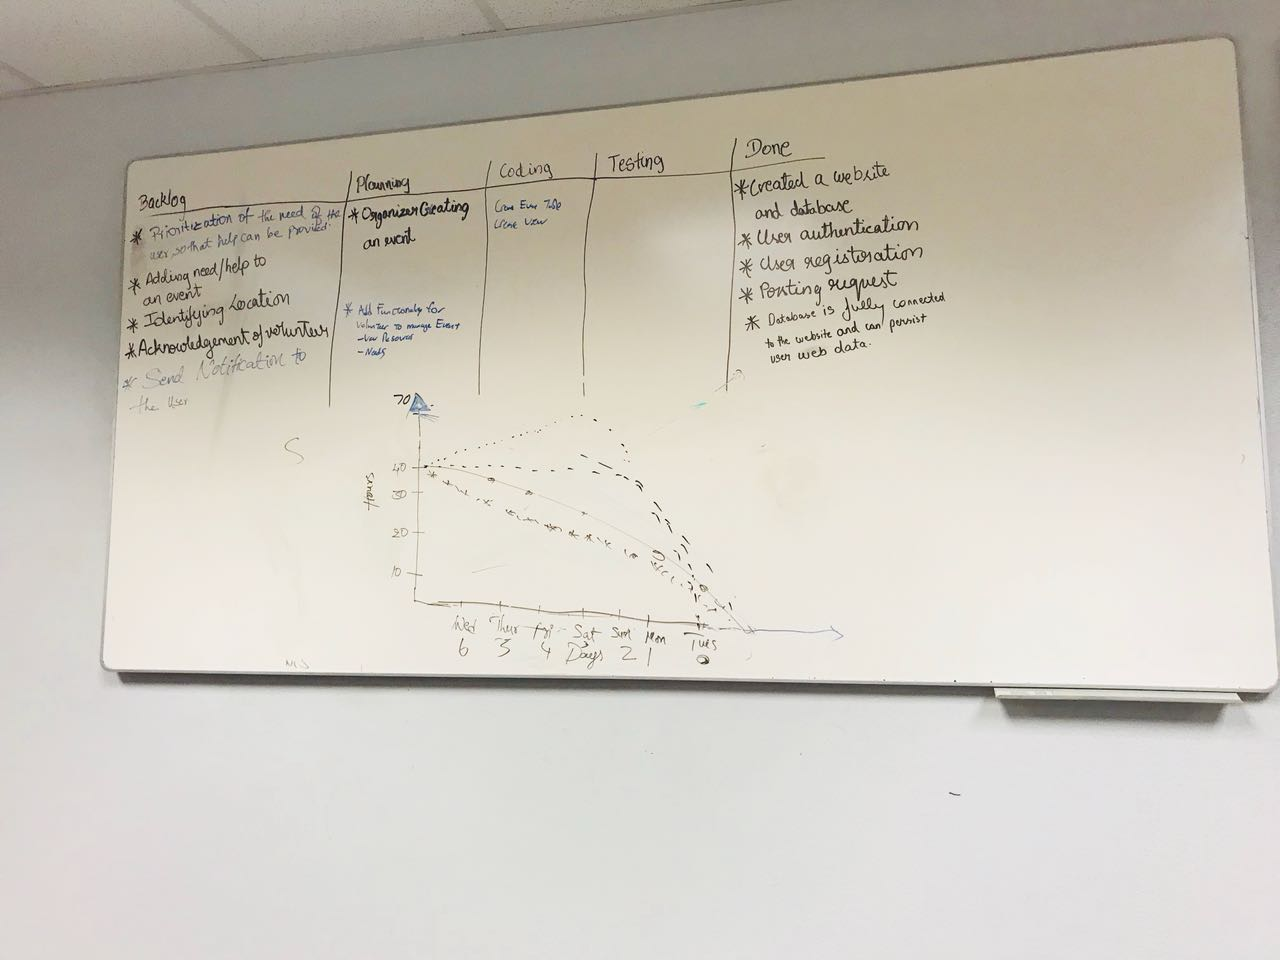 Backlog
* Prioritization of the need of the
user, so that help can be provided.
* Adding need/help to
an event
* Identifying Location
* Acknowledgement of volunteer
* Send Notification to
the user
Planning
* Organizer Creating
an event
* Add Functionality for
Volunteer to manage Event
- View Resources
- Needs
Coding
Create Event Table
Create View
Testing
Done
* Created a website
and database
* User authentication
* User registeration
* Posting request
* Database is fully connected
to the website and can persist
user web data.
S
70
40
30
20
10
Hours
Wed Thur Fri Sat Sun Mon Tues
6 3 4 3 2 1 0
Days